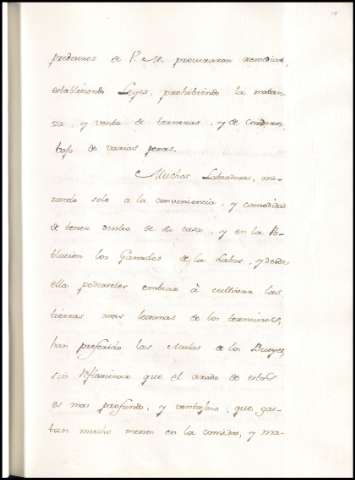 predecesores de V. M. procuraron remediar,
estableciendo Leyes, prohibiendo la matan-
za, y venta de terneras, y de Corderos,
bajo de varias penas.
Muchos Labradores, mi-
rando solo a la conveniencia, y comodidad
de tener dentro de su casa, y en la Po-
blacion los Ganados de la Labor, y desde
ella poderles embiar à cultivar las
tierras mas lexanas de los terminos,
han preferido las Mulas de los Bueyes,
sin reflexionar que el arado de estos
es mas profundo, y ventajoso, que gas-
tan mucho menos en la comida, y ma-